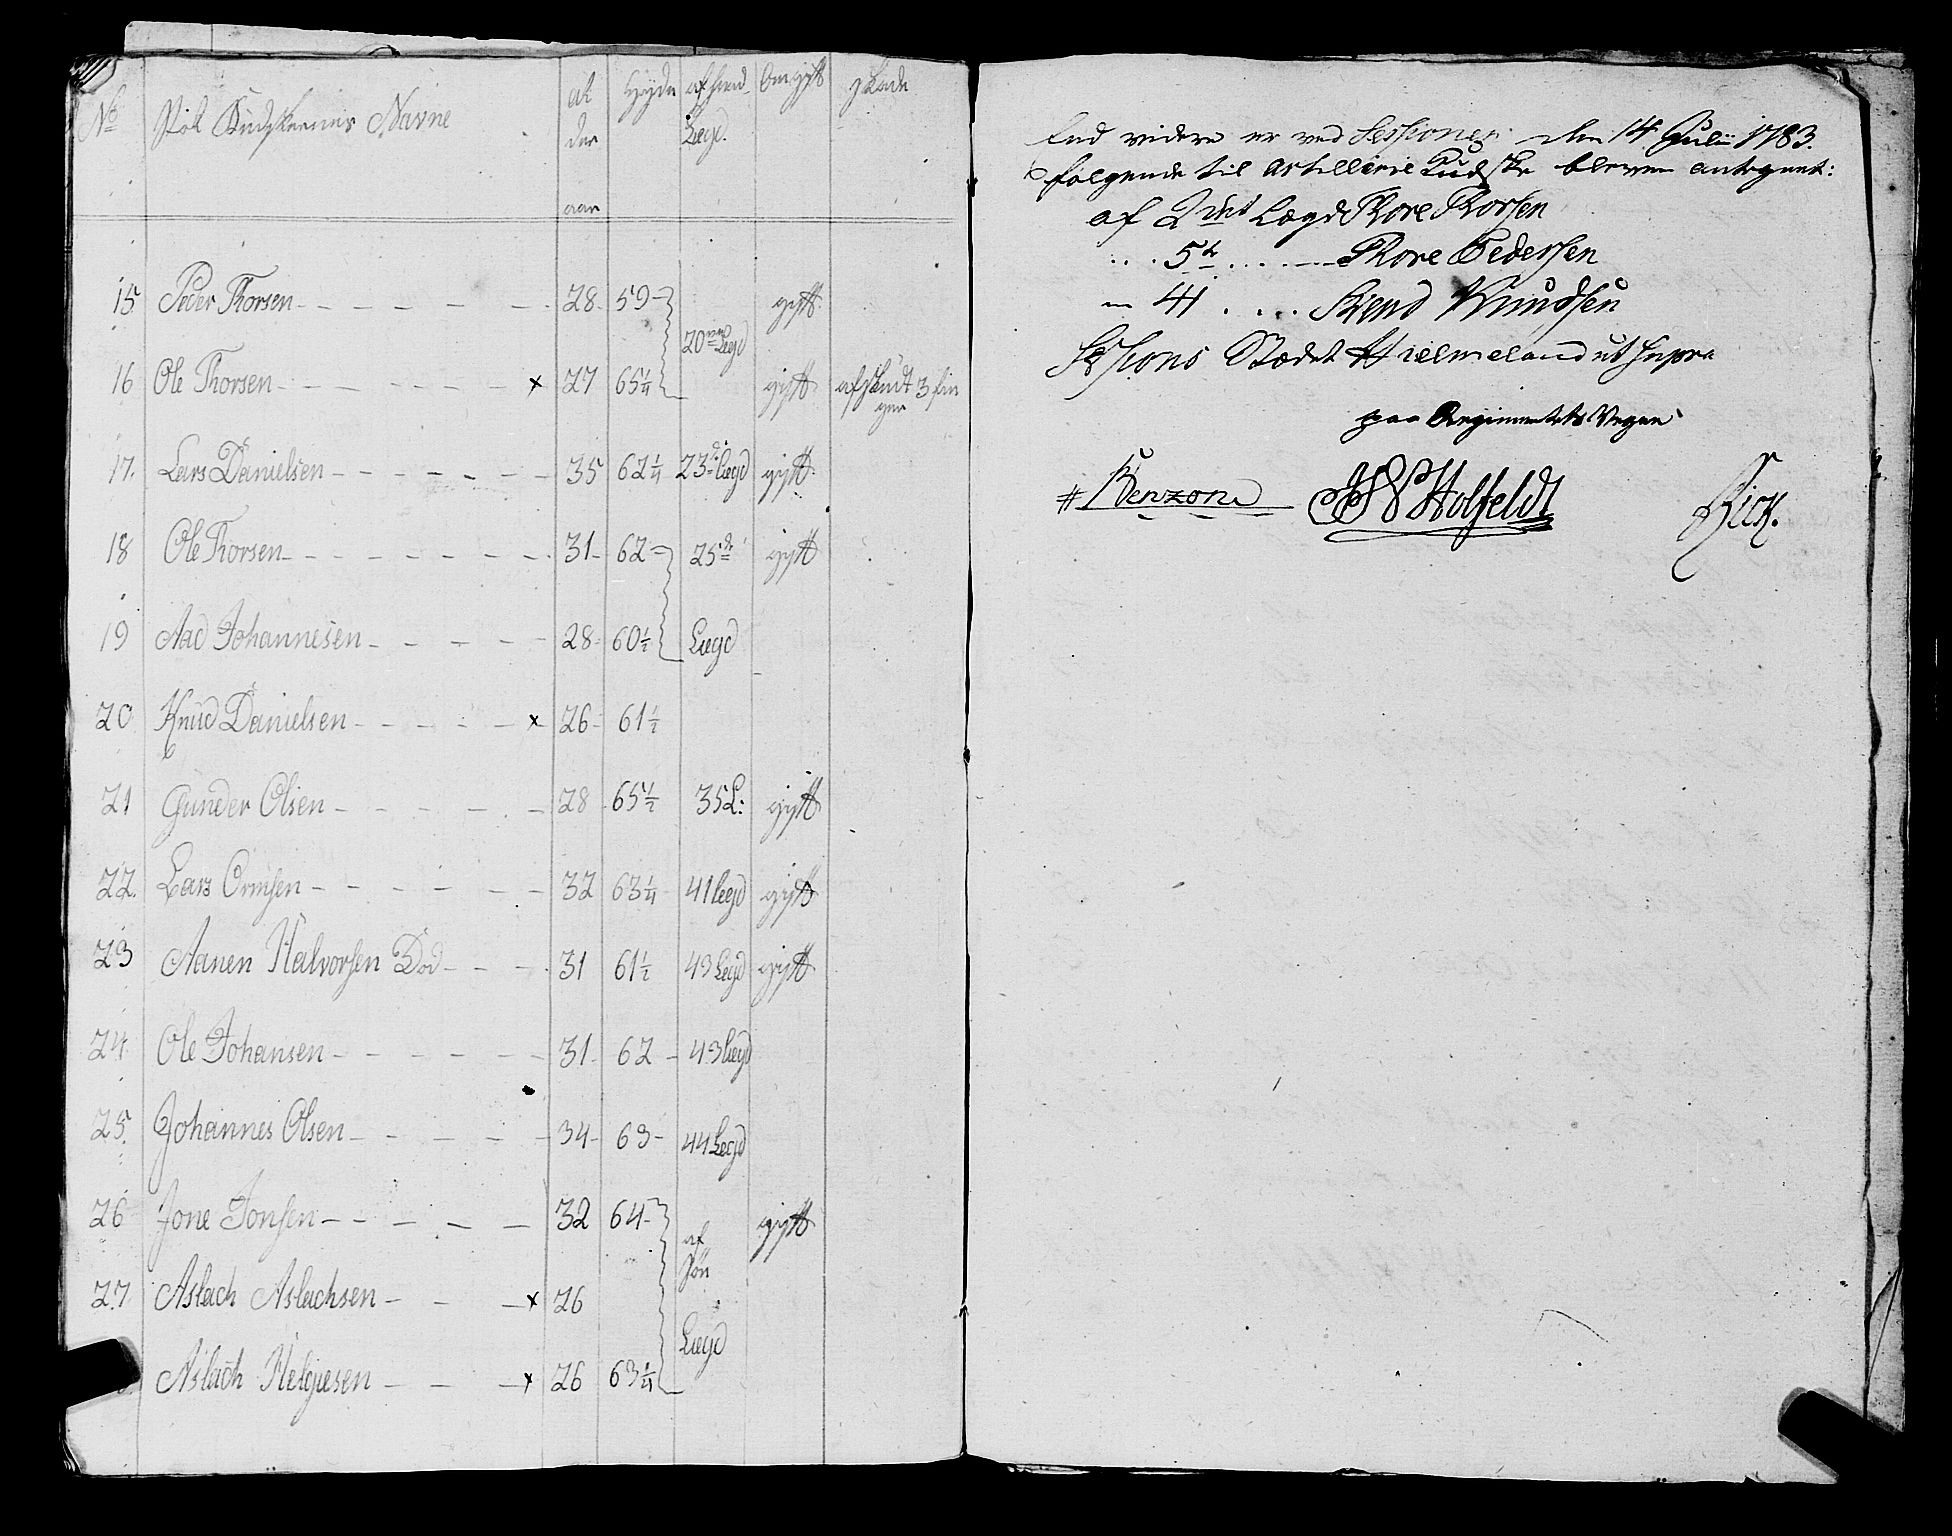 No Navne al der aar Høyde af hvad Lægd. Om gift Skade
15 Peder Thorsen - - - - - 28. 59- gift
20 Lægd
16 Ole Thorsen - - - - - x 27 65 1/4 gift afskudt 3 fin
ger
17. Lars Danielsen - - - - - 35 62 1/4 23de Lægd gift
18 Ole Thorsen - - - - - 31- 62- 25de gift
19 Aad Johannesen - - - - - 28- 60 1/2 Lægd
20 Knud Danielsen - - - - x 26- 61 1/2
21 Gunder Olsen - - - - - 28 65 1/2 35 L: gift
22. Lars Ormsen - - - - - 32 63 1/4 41 Lægd gift
23 Aanen Halvorsen Død - - - 31 61 1/2 43 Lægd gift
24. Ole Johansen - - - - - 31- 62 - 43 Lægd
25. Johannes Olsen - - - - - 34- 63- 44 Lægd
26 Jone Jonsen - - - - - 32 64- gift
af
27. Aslach Aslachsen - - - x 26
Lægd
Aslach Helgiesen - - - x 26 63 1/4
End videre er ved Sessionen den 14 Julii 1783.
følgende til Artillerie Kudske bleven antegnet:
af 2det Lægd Thore Thorsen
. . . 5te . . . . Thore Pedersen
— 41 . . . . Svend Knudsen
Sessions Stædet Hielmeland ut supra
paa Regimentets Vegne
Benzon HW Holfeldt Bick.